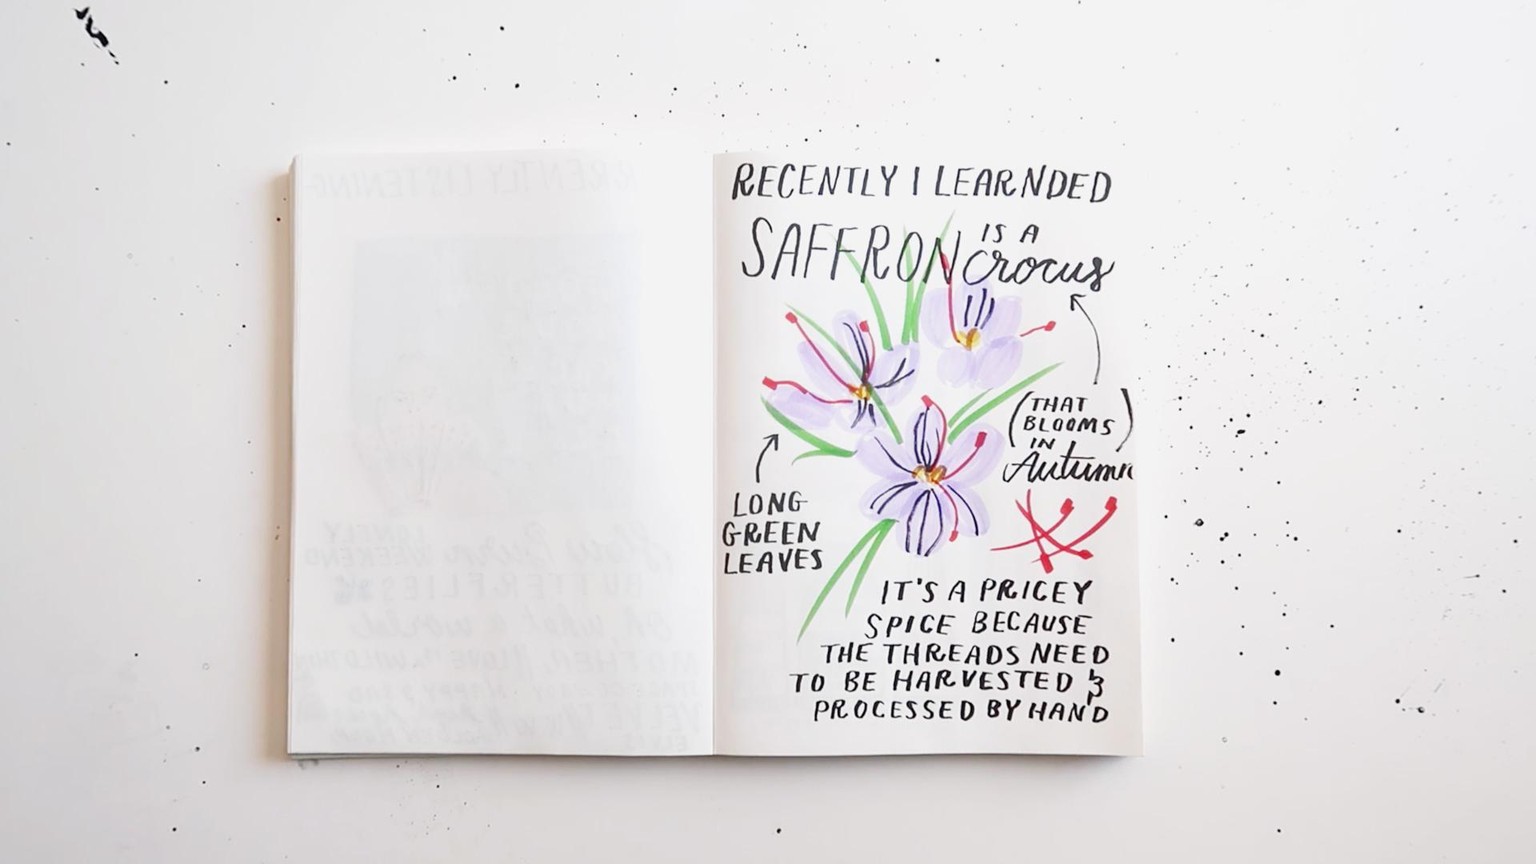 RECENTLY I LEARNDED
SAFFRON IS A
crocus
(THAT
BLOOMS)
IN
Autumn
LONG
GREEN
LEAVES
IT'S A PRICEY
SPICE BECAUSE
THE THREADS NEED
TO BE HARVESTED &
PROCESSED BY HAND